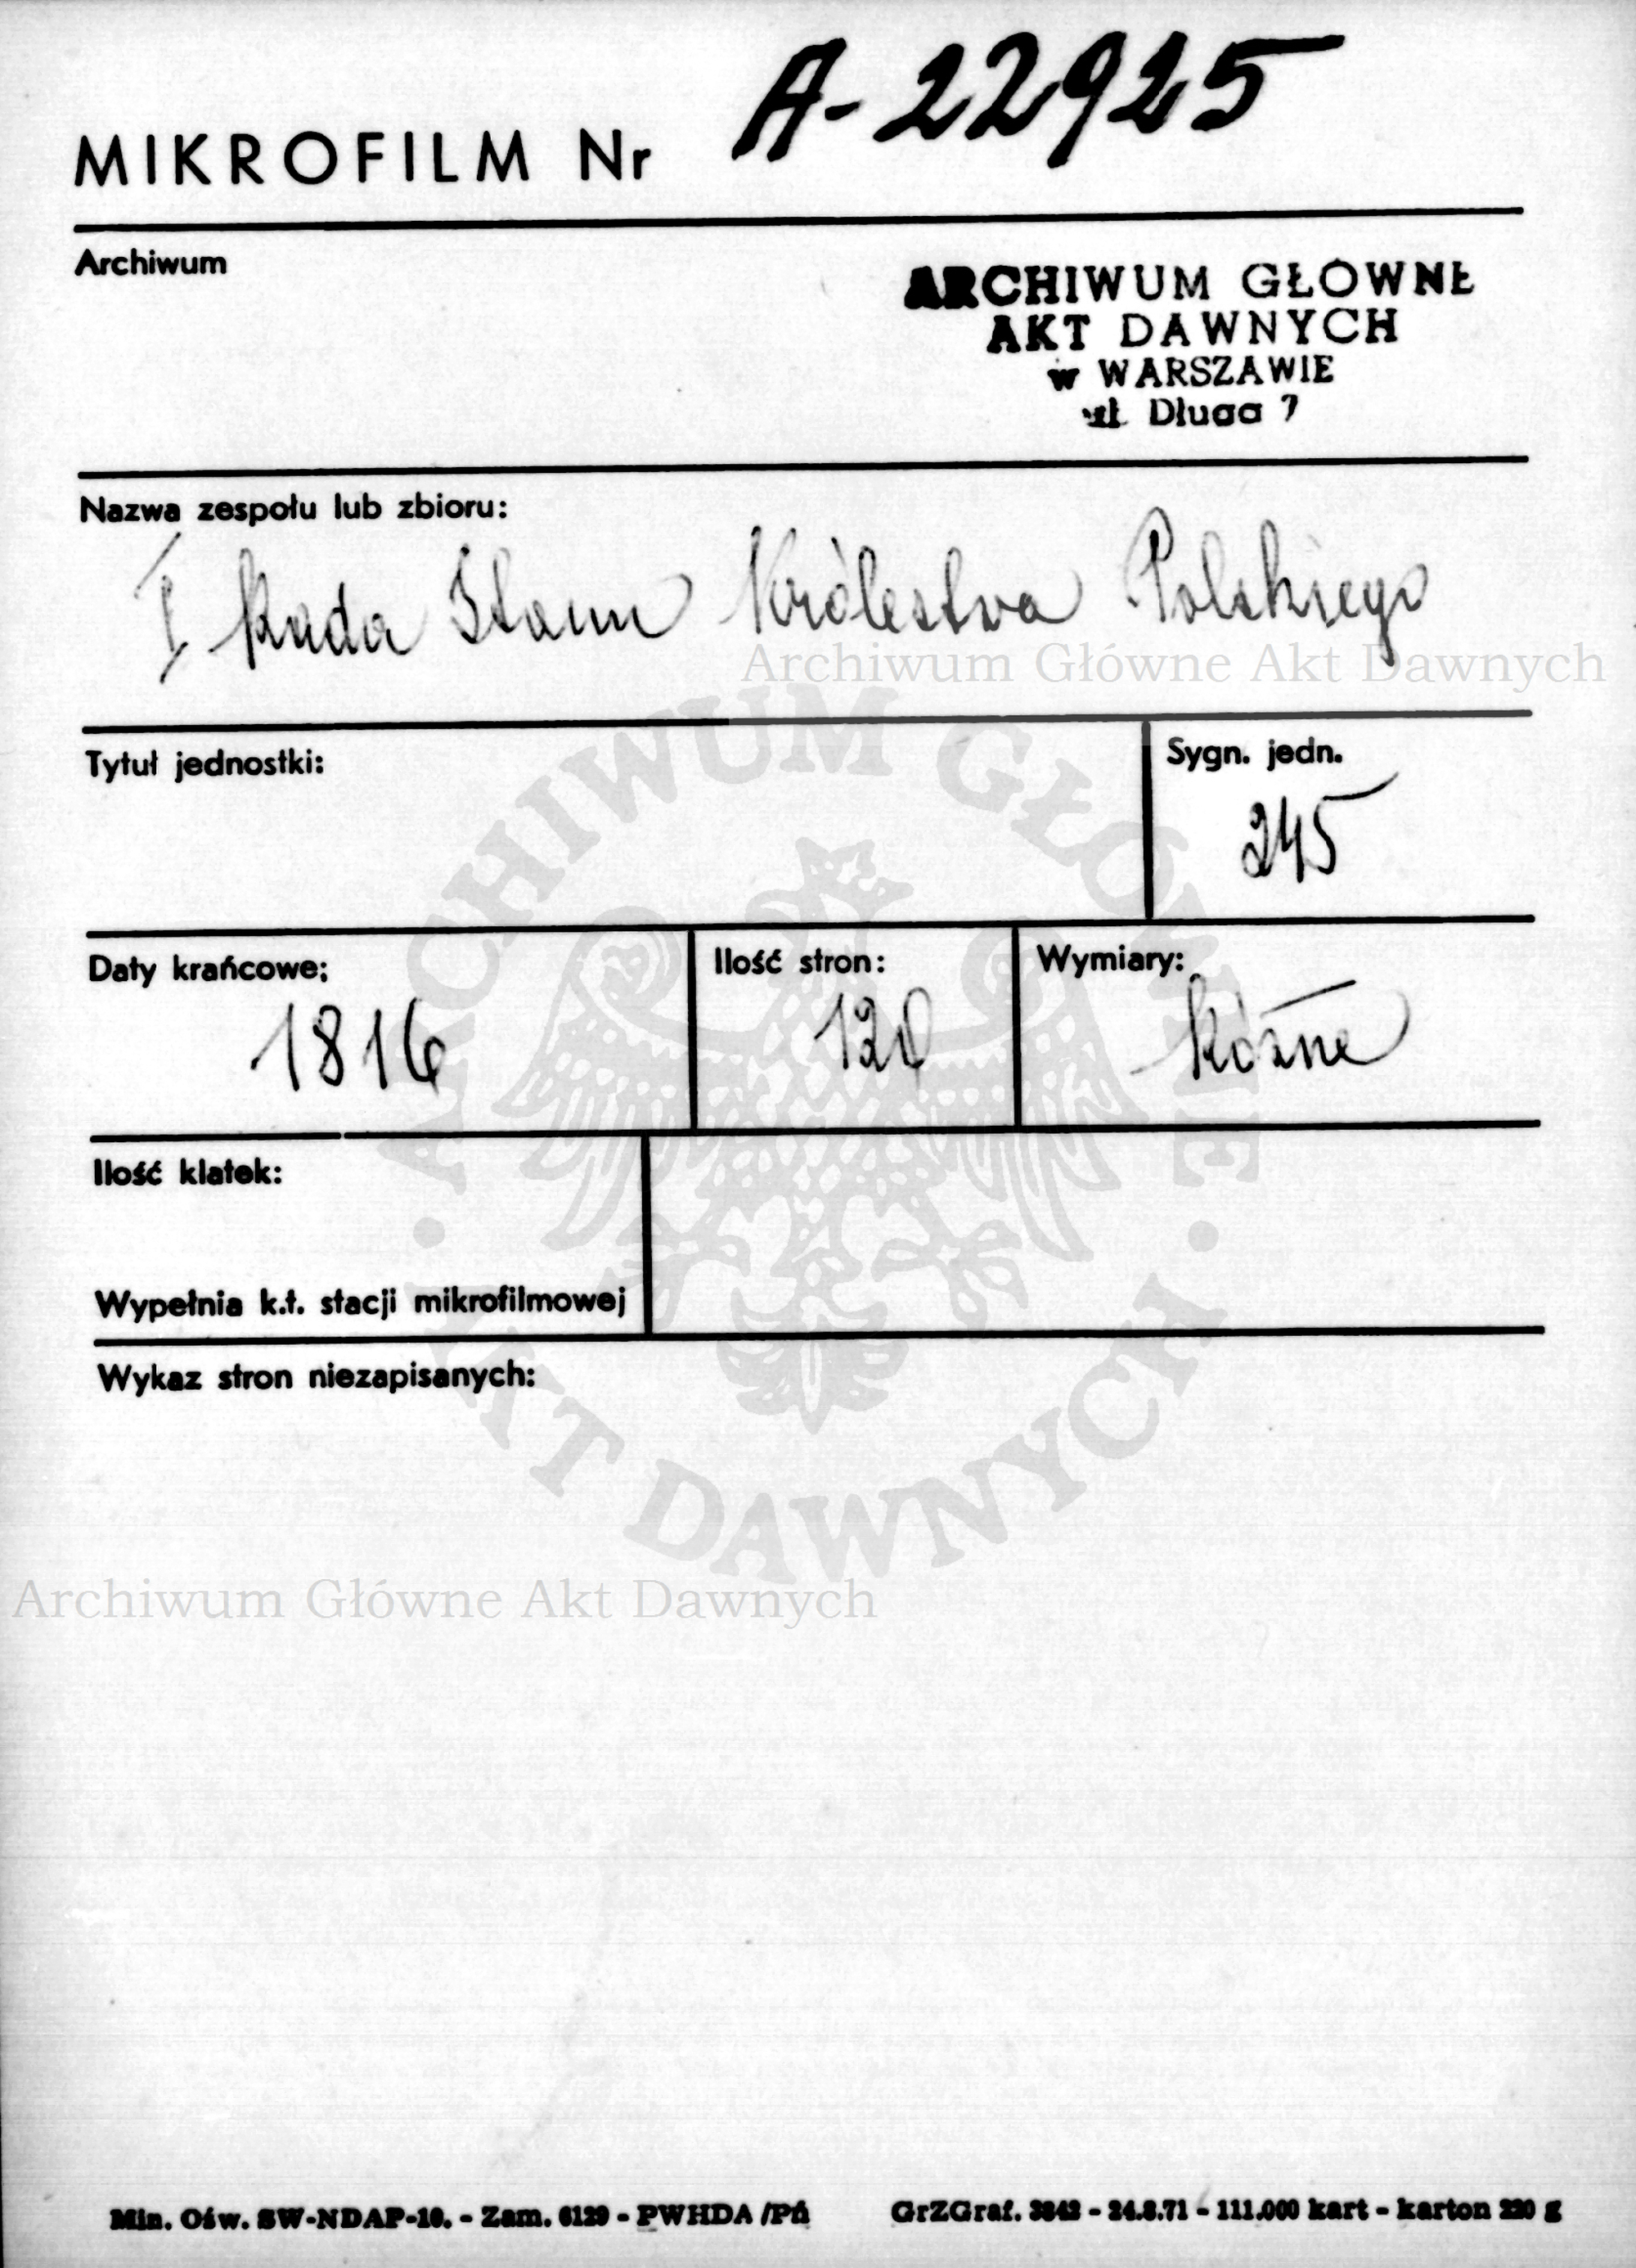 MIKROFILM Nr A-22925
Archiwum
ARCHIWUM GŁÓWNE
AKT DAWNYCH
w WARSZAWIE
ul. Długa 7
Nazwa zespołu lub zbioru:
I Rada Stanu Królestwa Polskiego
Archiwum Główne Akt Dawnych
Tytuł jednostki:
Sygn. jedn.
245
Daty krańcowe:
1816
Ilość stron:
120
Wymiary:
Różne
Ilość klatek:
Wypełnia k.t. stacji mikrofilmowej
Wykaz stron niezapisanych:
ARCHIWUM GŁÓWNE
AKT DAWNYCH
Archiwum Główne Akt Dawnych
Min. Ośw. SW-NDAP-10. - Zam. 6129 - PWHDA /Pń
GrZGraf. 3842 - 24.8.71 - 111.000 kart - karton 220 g